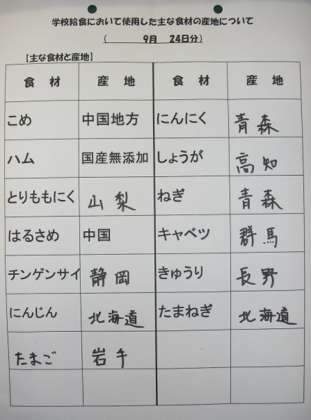 学校給食において使用した主な食材の産地について
( 9月 24日分)
【主な食材と産地】
食 材 産 地 食 材 産 地
こめ 中国地方 にんにく 青森
ハム 国産無添加 しょうが 高知
とりももにく 山梨 ねぎ 青森
はるさめ 中国 キャベツ 群馬
チンゲンサイ 静岡 きゅうり 長野
にんじん 北海道 たまねぎ 北海道
たまご 岩手